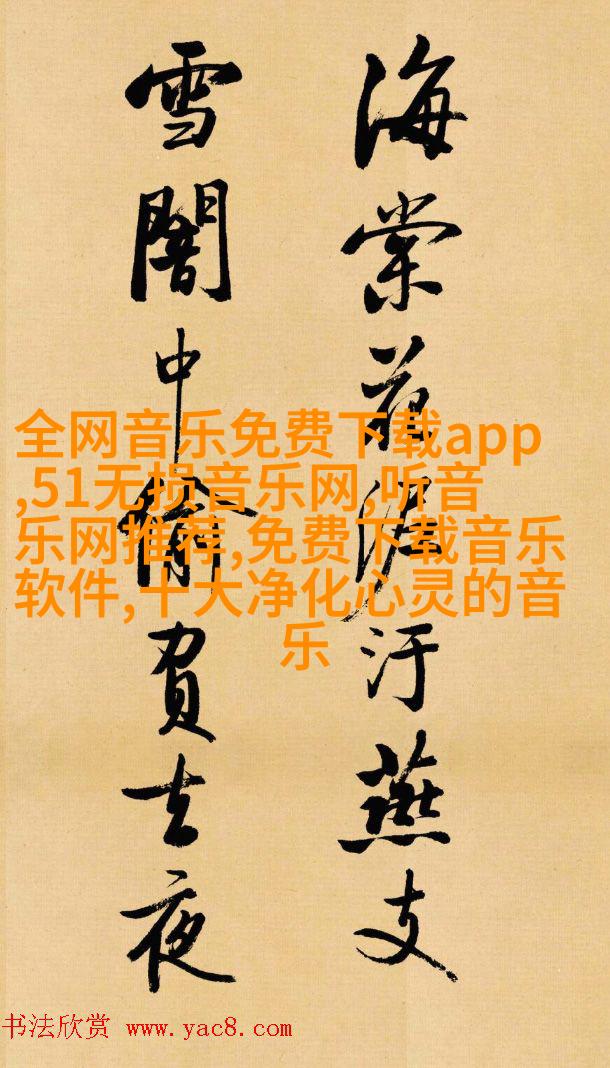 海棠花泥汙燕支
雪闇中偷負去夜
全网音乐免费下载app
,51无损音乐网,听音
乐网推荐,免费下载音乐
软件,十大净化心灵的音
乐
书法欣赏 www.yac8.com